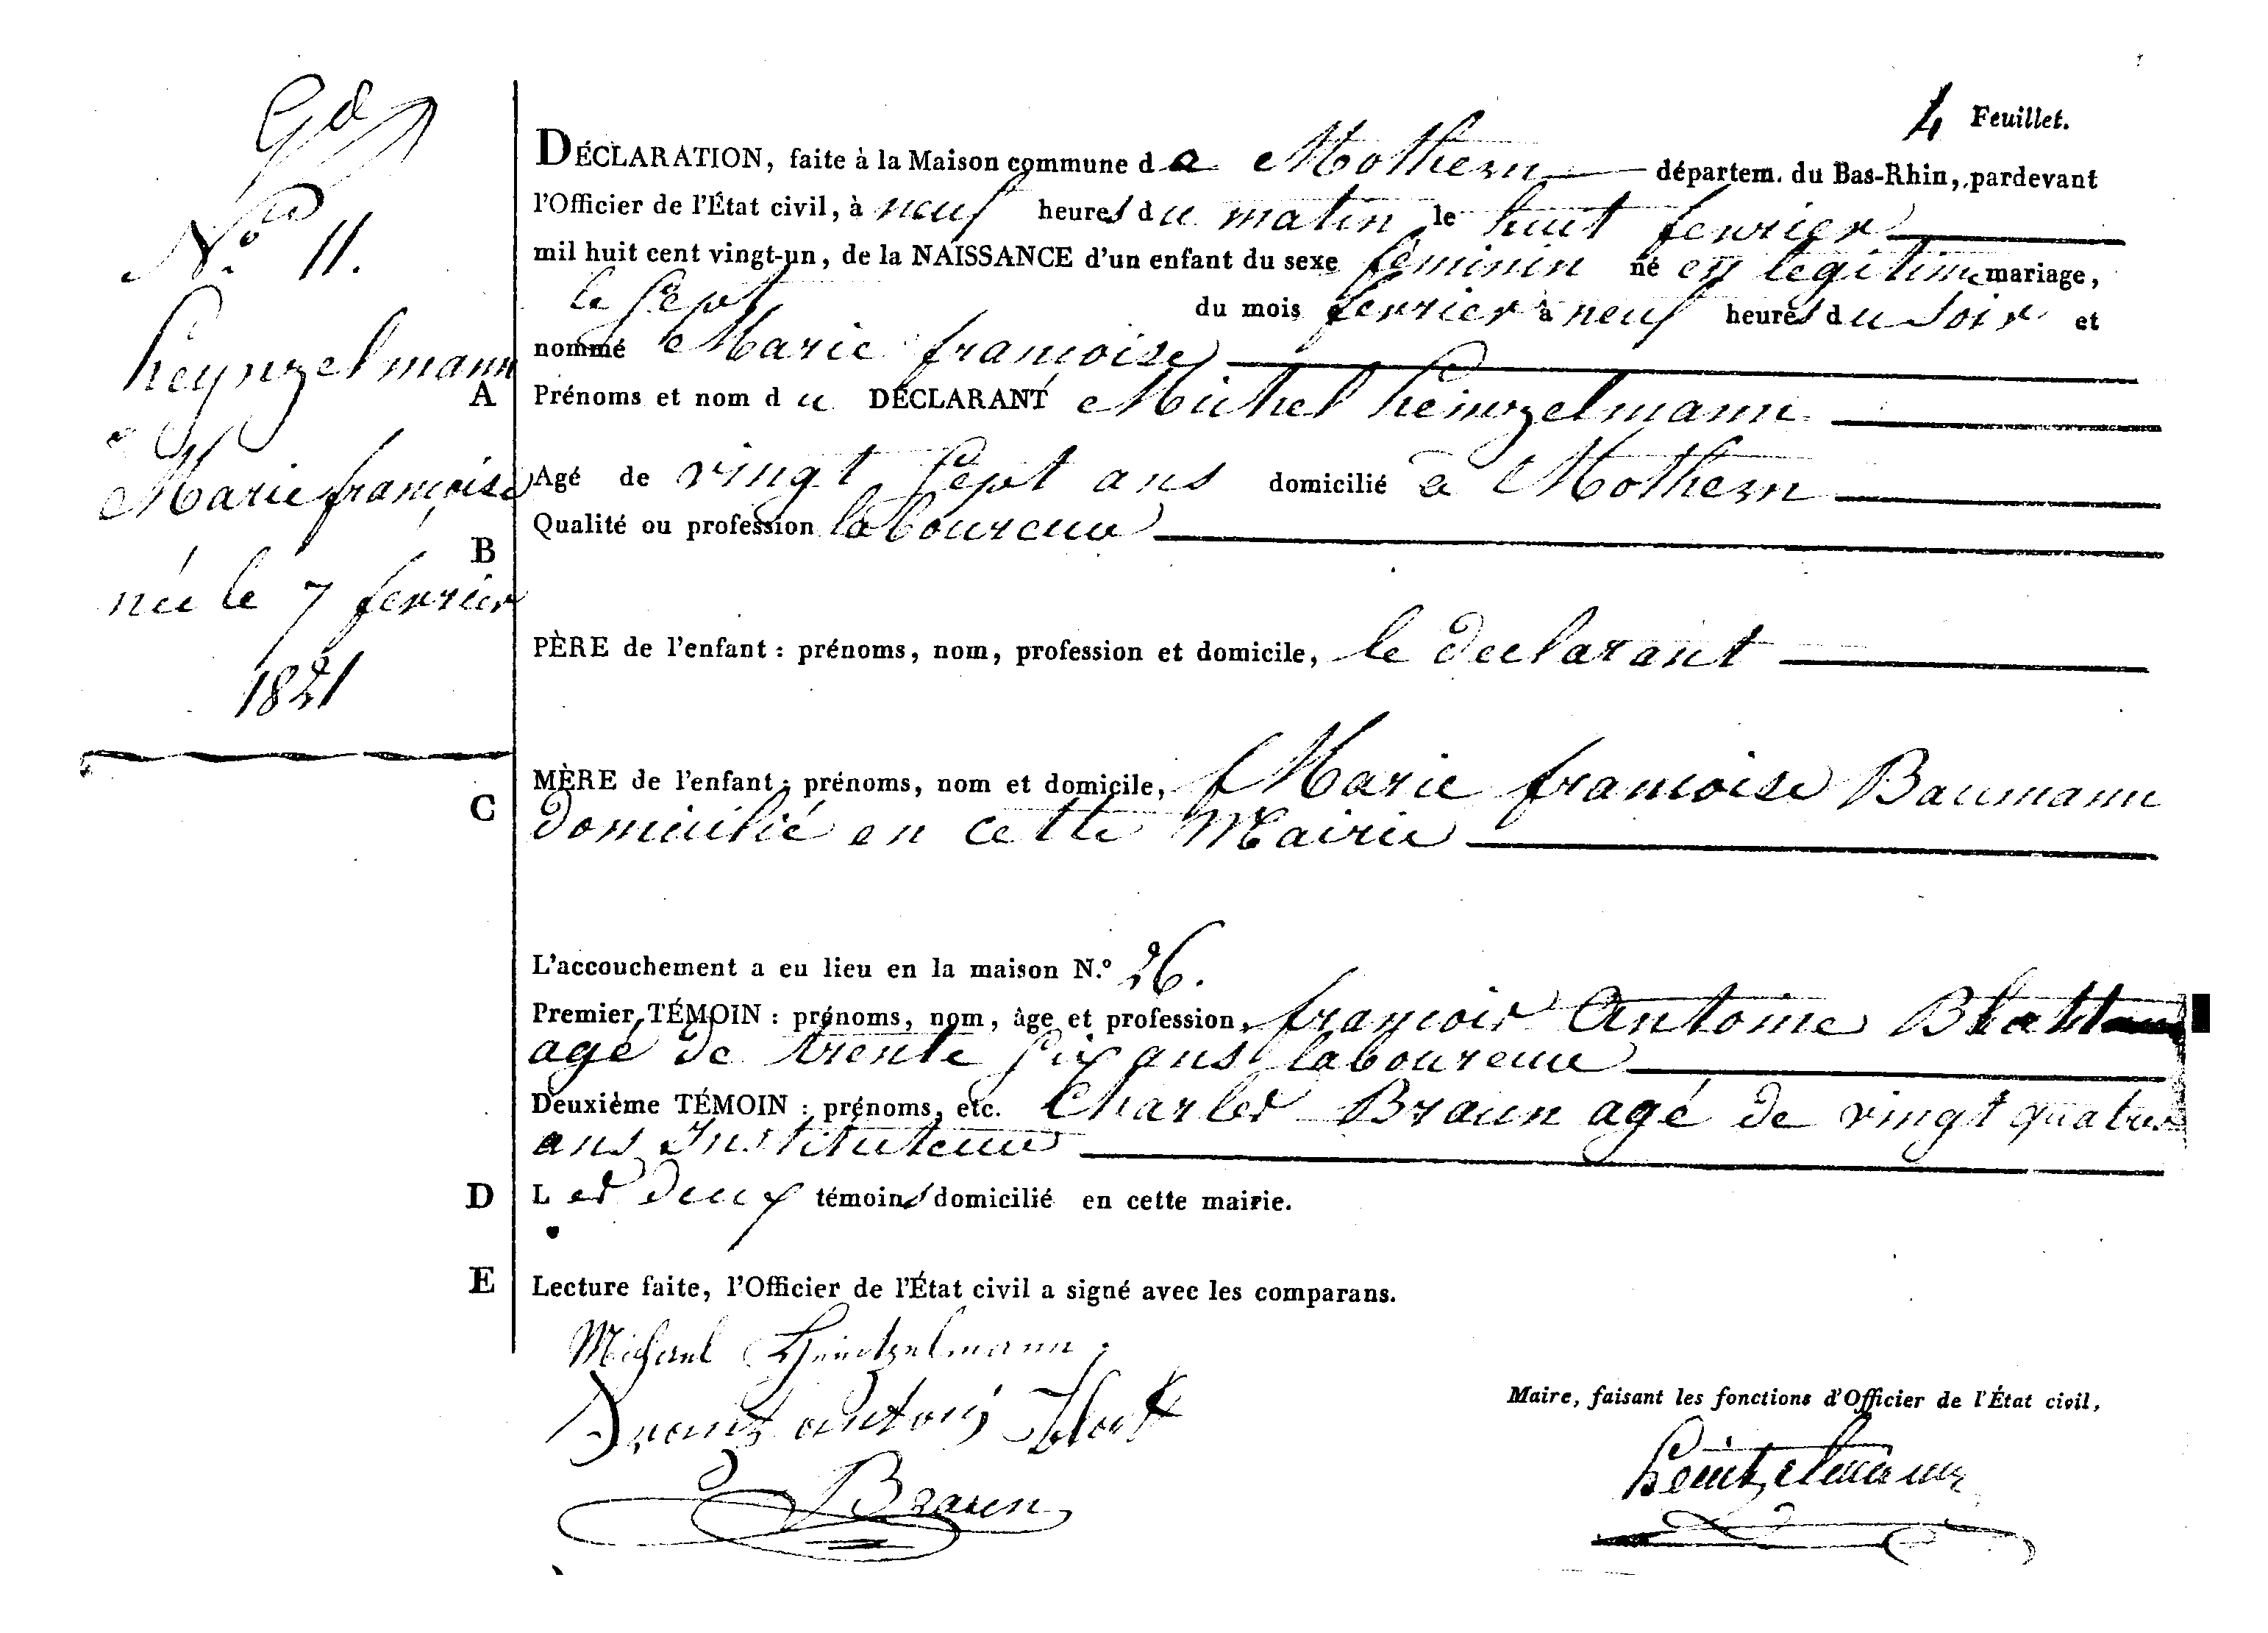 4 Feuillet.
N.º 11.
heynzelmann
Marie françoise
née le 7 fevrier
1821
DÉCLARATION, faite à la Maison commune d a Mothern départem. du Bas-Rhin, pardevant
l'Officier de l'État civil, à neuf heures du matin le huit fevrier
mil huit cent vingt-un, de la NAISSANCE d'un enfant du sexe féminin né en legitime mariage,
le sept du mois fevrier à neuf heures du soir et
nommé Marie françoise
A Prénoms et nom d u DÉCLARANT Michel heinzelmann
Agé de vingt sept ans domicilié a Mothern
B Qualité ou profession laboureur
PÈRE de l'enfant : prénoms, nom, profession et domicile, le declarant
C MÈRE de l'enfant : prénoms, nom et domicile, Marie francoise Baumann
domicilié en cette Mairie
L'accouchement a eu lieu en la maison N.º 26.
Premier TÉMOIN : prénoms, nom, âge et profession, françois Antoine Blatt
agé de trente six ans laboureur
Deuxième TÉMOIN : prénoms, etc. Charles Braun agé de vingt quatre
ans Instituteur
D Les deux témoins domicilié en cette mairie.
E Lecture faite, l'Officier de l'État civil a signé avec les comparans.
Michael Heintzelmann
Frantz antoni Blatt
Braun
Maire, faisant les fonctions d'Officier de l'État civil,
heintzelmann